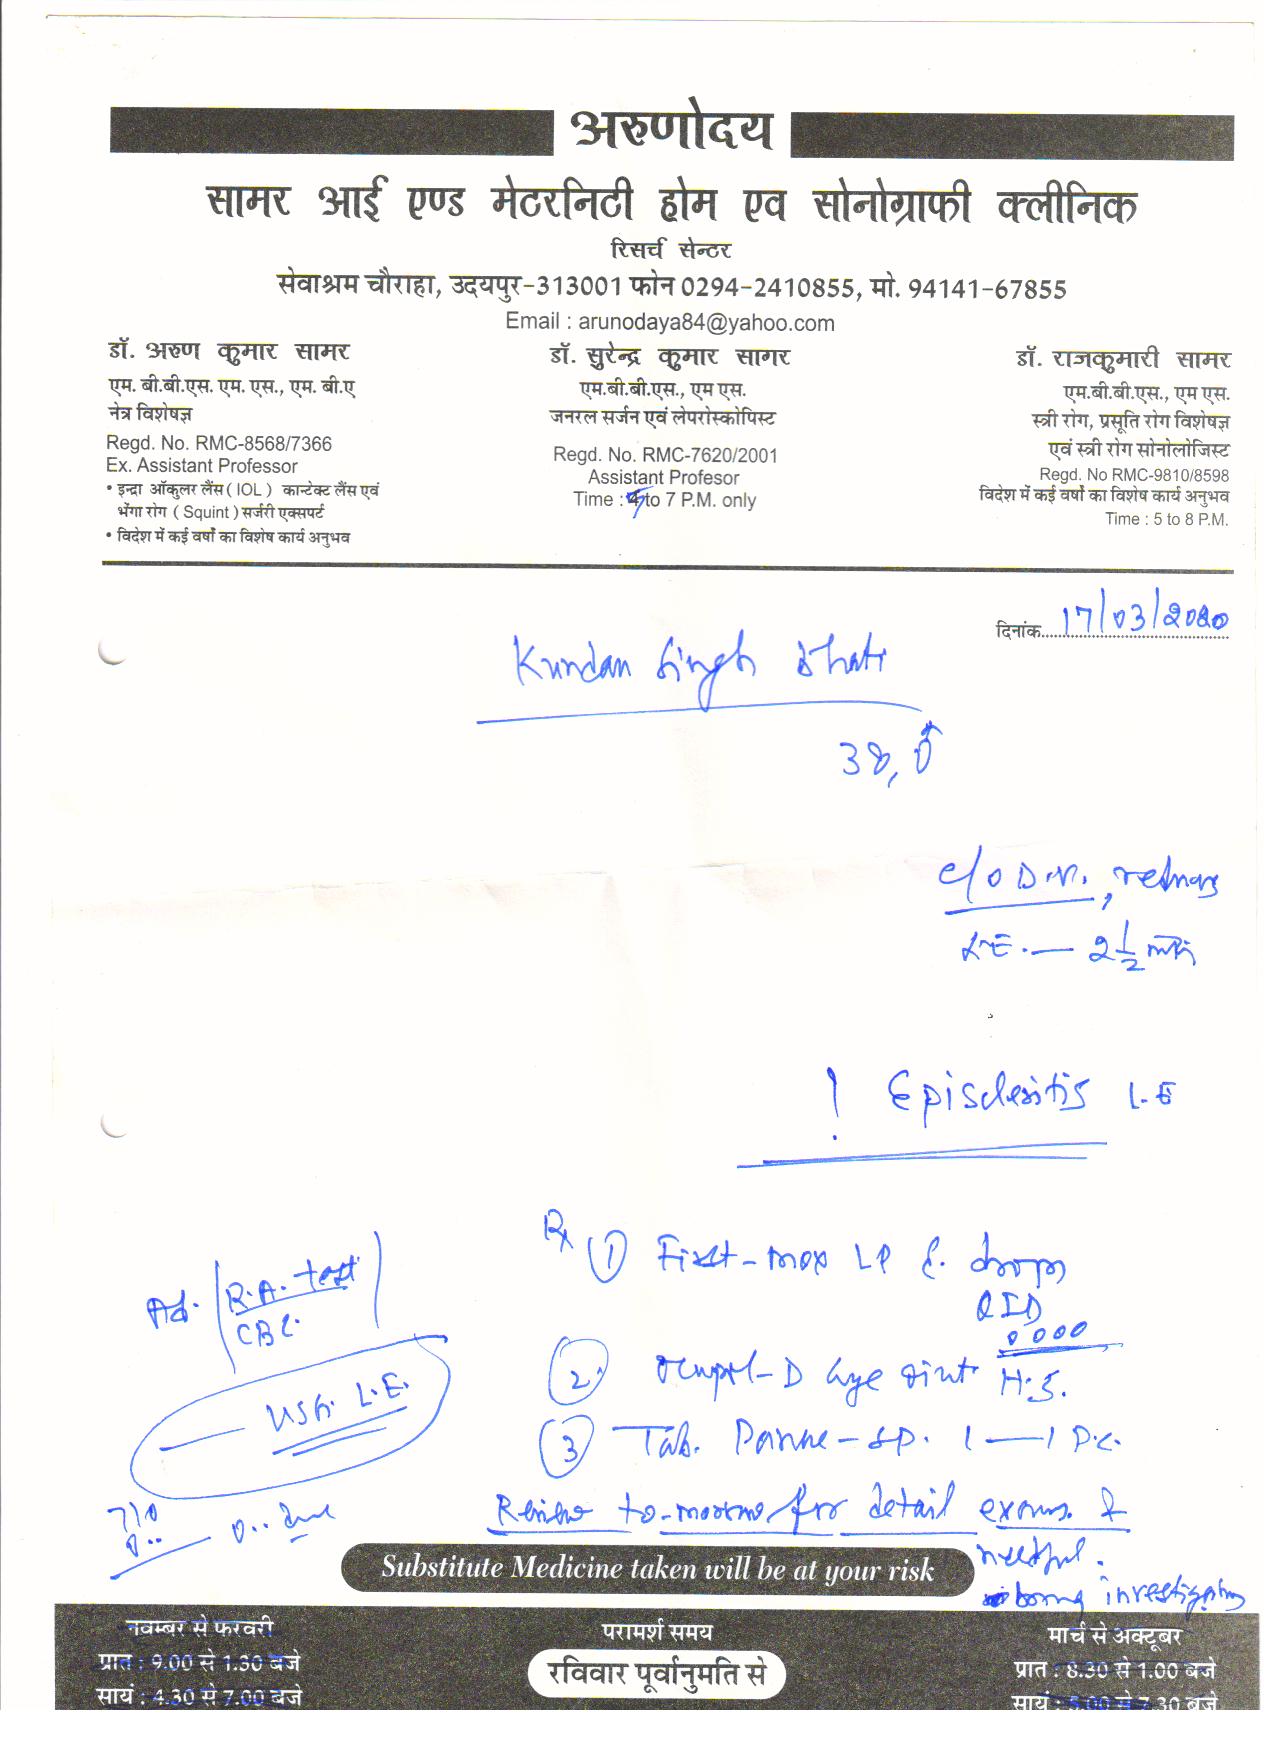 अरुणोदय
सामर आई एण्ड मेटरनिटी होम एव सोनोग्राफी क्लीनिक
रिसर्च सेन्टर
सेवाश्रम चौराहा, उदयपुर-313001 फोन 0294-2410855, मो. 94141-67855
Email : arunodaya84@yahoo.com
डॉ. अरुण कुमार सामर
एम. बी.बी.एस. एम. एस., एम. बी.ए
नेत्र विशेषज्ञ
Regd. No. RMC-8568/7366
Ex. Assistant Professor
• इन्द्रा ऑकुलर लैंस ( IOL ) कान्टेक्ट लैंस एवं
भेंगा रोग ( Squint ) सर्जरी एक्सपर्ट
• विदेश में कई वर्षों का विशेष कार्य अनुभव
डॉ. सुरेन्द्र कुमार सागर
एम.बी.बी.एस., एम एस.
जनरल सर्जन एवं लेपरोस्कोपिस्ट
Regd. No. RMC-7620/2001
Assistant Profesor
Time : 5 to 7 P.M. only
डॉ. राजकुमारी सामर
एम.बी.बी.एस., एम एस.
स्त्री रोग, प्रसूति रोग विशेषज्ञ
एवं स्त्री रोग सोनोलोजिस्ट
Regd. No RMC-9810/8598
विदेश में कई वर्षों का विशेष कार्य अनुभव
Time : 5 to 8 P.M.
दिनांक 17/03/2020
Kundan Singh Bhati
38,
c/o D.V., redness
L.E. — 2 1/2
! Episcleritis L.E
Rx 1 LP E. drops
QID
0000
2 -D eye oint H.S.
3 Tab. -SP. 1 — 1 P.C.
Review to-morrow for detail exam. &
needful.
bring investigations
Ad. R.A. test
CBC.
— USG. L.E.
Substitute Medicine taken will be at your risk
नवम्बर से फरवरी
प्रात : 9.00 से 1.30 बजे
सायं : 4.30 से 7.00 बजे
परामर्श समय
रविवार पूर्वानुमति से
मार्च से अक्टूबर
प्रात : 8.30 से 1.00 बजे
सायं : 5.00 से 7.30 बजे